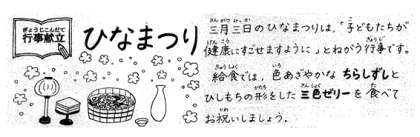 ぎょうじこんだて
行事献立
ひなまつり
三月三日のひなまつりは、「子どもたちが
健康にすごせますように」とねがう行事です。
給食では、色あざやかな ちらしずしと
ひしもちの形をした 三色ゼリーを食べて
お祝いしましょう。